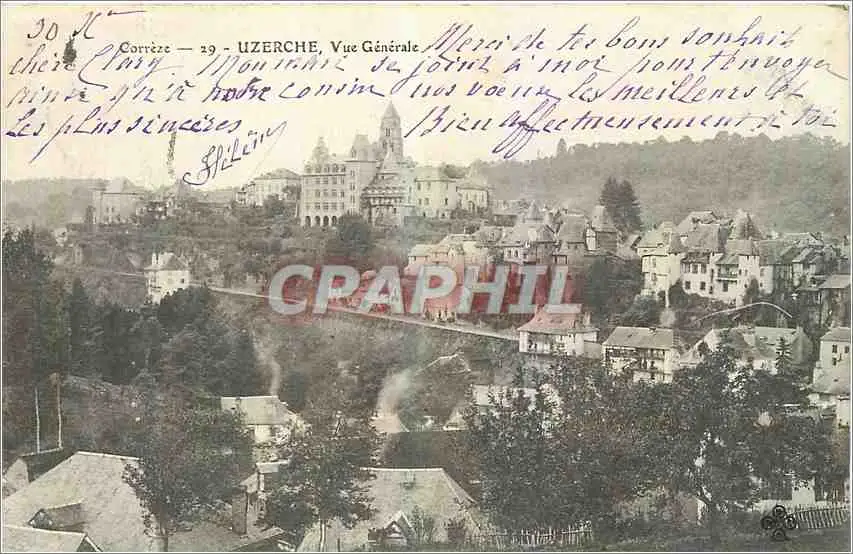 30 Xbre
Corrèze — 29 - UZERCHE, Vue Générale
Merci de tes bons souhaits
chère Clary. Mon mari se joint à moi pour t'envoyer
ainsi qu'à notre cousin nos vœux les meilleurs et
les plus sincères
Bien affectueusement à toi
Hélène
CPAPHIL